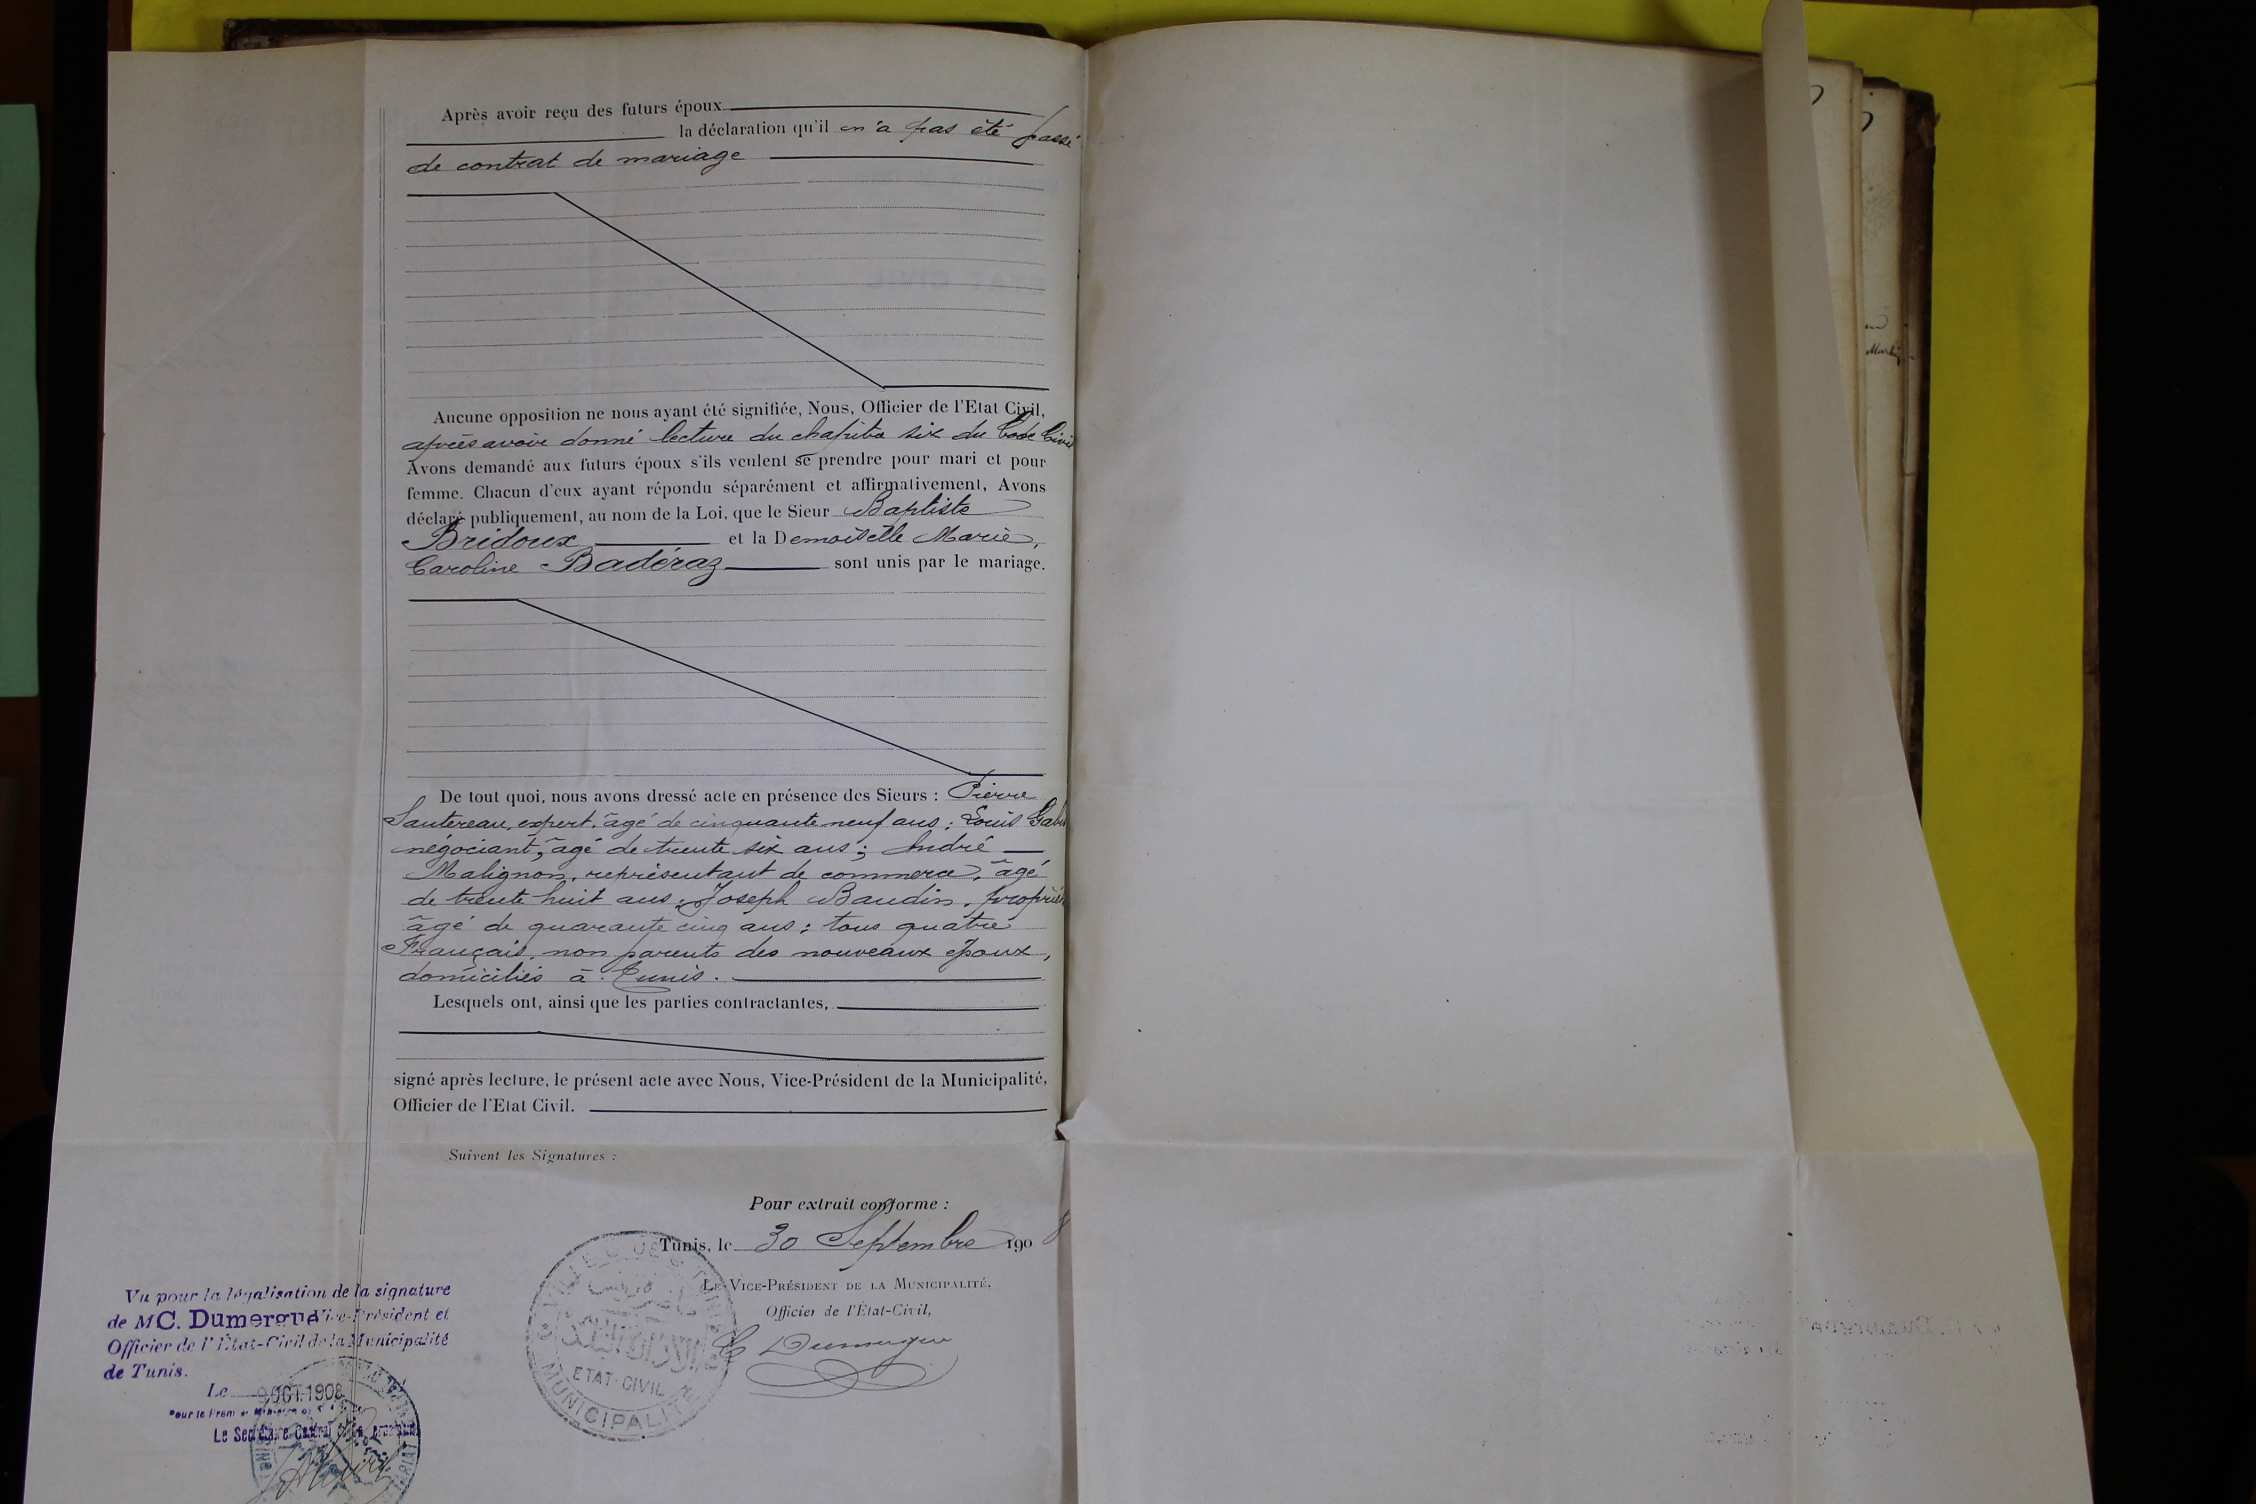 Après avoir reçu des futurs époux
la déclaration qu'il n'a pas été passé
de contrat de mariage
Aucune opposition ne nous ayant été signifiée, Nous, Officier de l'Etat Civil,
après avoir donné lecture du chapitre six du Code Civil
Avons demandé aux futurs époux s'ils veulent se prendre pour mari et pour
femme. Chacun d'eux ayant répondu séparément et affirmativement, Avons
déclaré publiquement, au nom de la Loi, que le Sieur Baptiste
Bridoux et la Demoiselle Marie,
Caroline Badéraz sont unis par le mariage.
De tout quoi, nous avons dressé acte en présence des Sieurs : Pierre
Sautereau, expert, âgé de cinquante neuf ans ; Louis
négociant, âgé de trente six ans ; André
Malignon, représentant de commerce, âgé
de trente huit ans ; Joseph Baudin,
âgé de quarante cinq ans ; tous quatre
Français, non parents des nouveaux époux,
domiciliés à Tunis.
Lesquels ont, ainsi que les parties contractantes,
signé après lecture, le présent acte avec Nous, Vice-Président de la Municipalité,
Officier de l'Etat Civil.
Suivent les Signatures :
Pour extrait conforme :
Tunis, le 30 Septembre 1908
LE VICE-PRÉSIDENT DE LA MUNICIPALITÉ,
Officier de l'État-Civil,
C Dumergue
ETAT-CIVIL
MUNICIPALITÉ
Vu pour la légalisation de la signature
de M C. Dumergue Vice-Président et
Officier de l'Etat-Civil de la Municipalité
de Tunis.
Le 9 OCT. 1908
Le Secrétaire Général